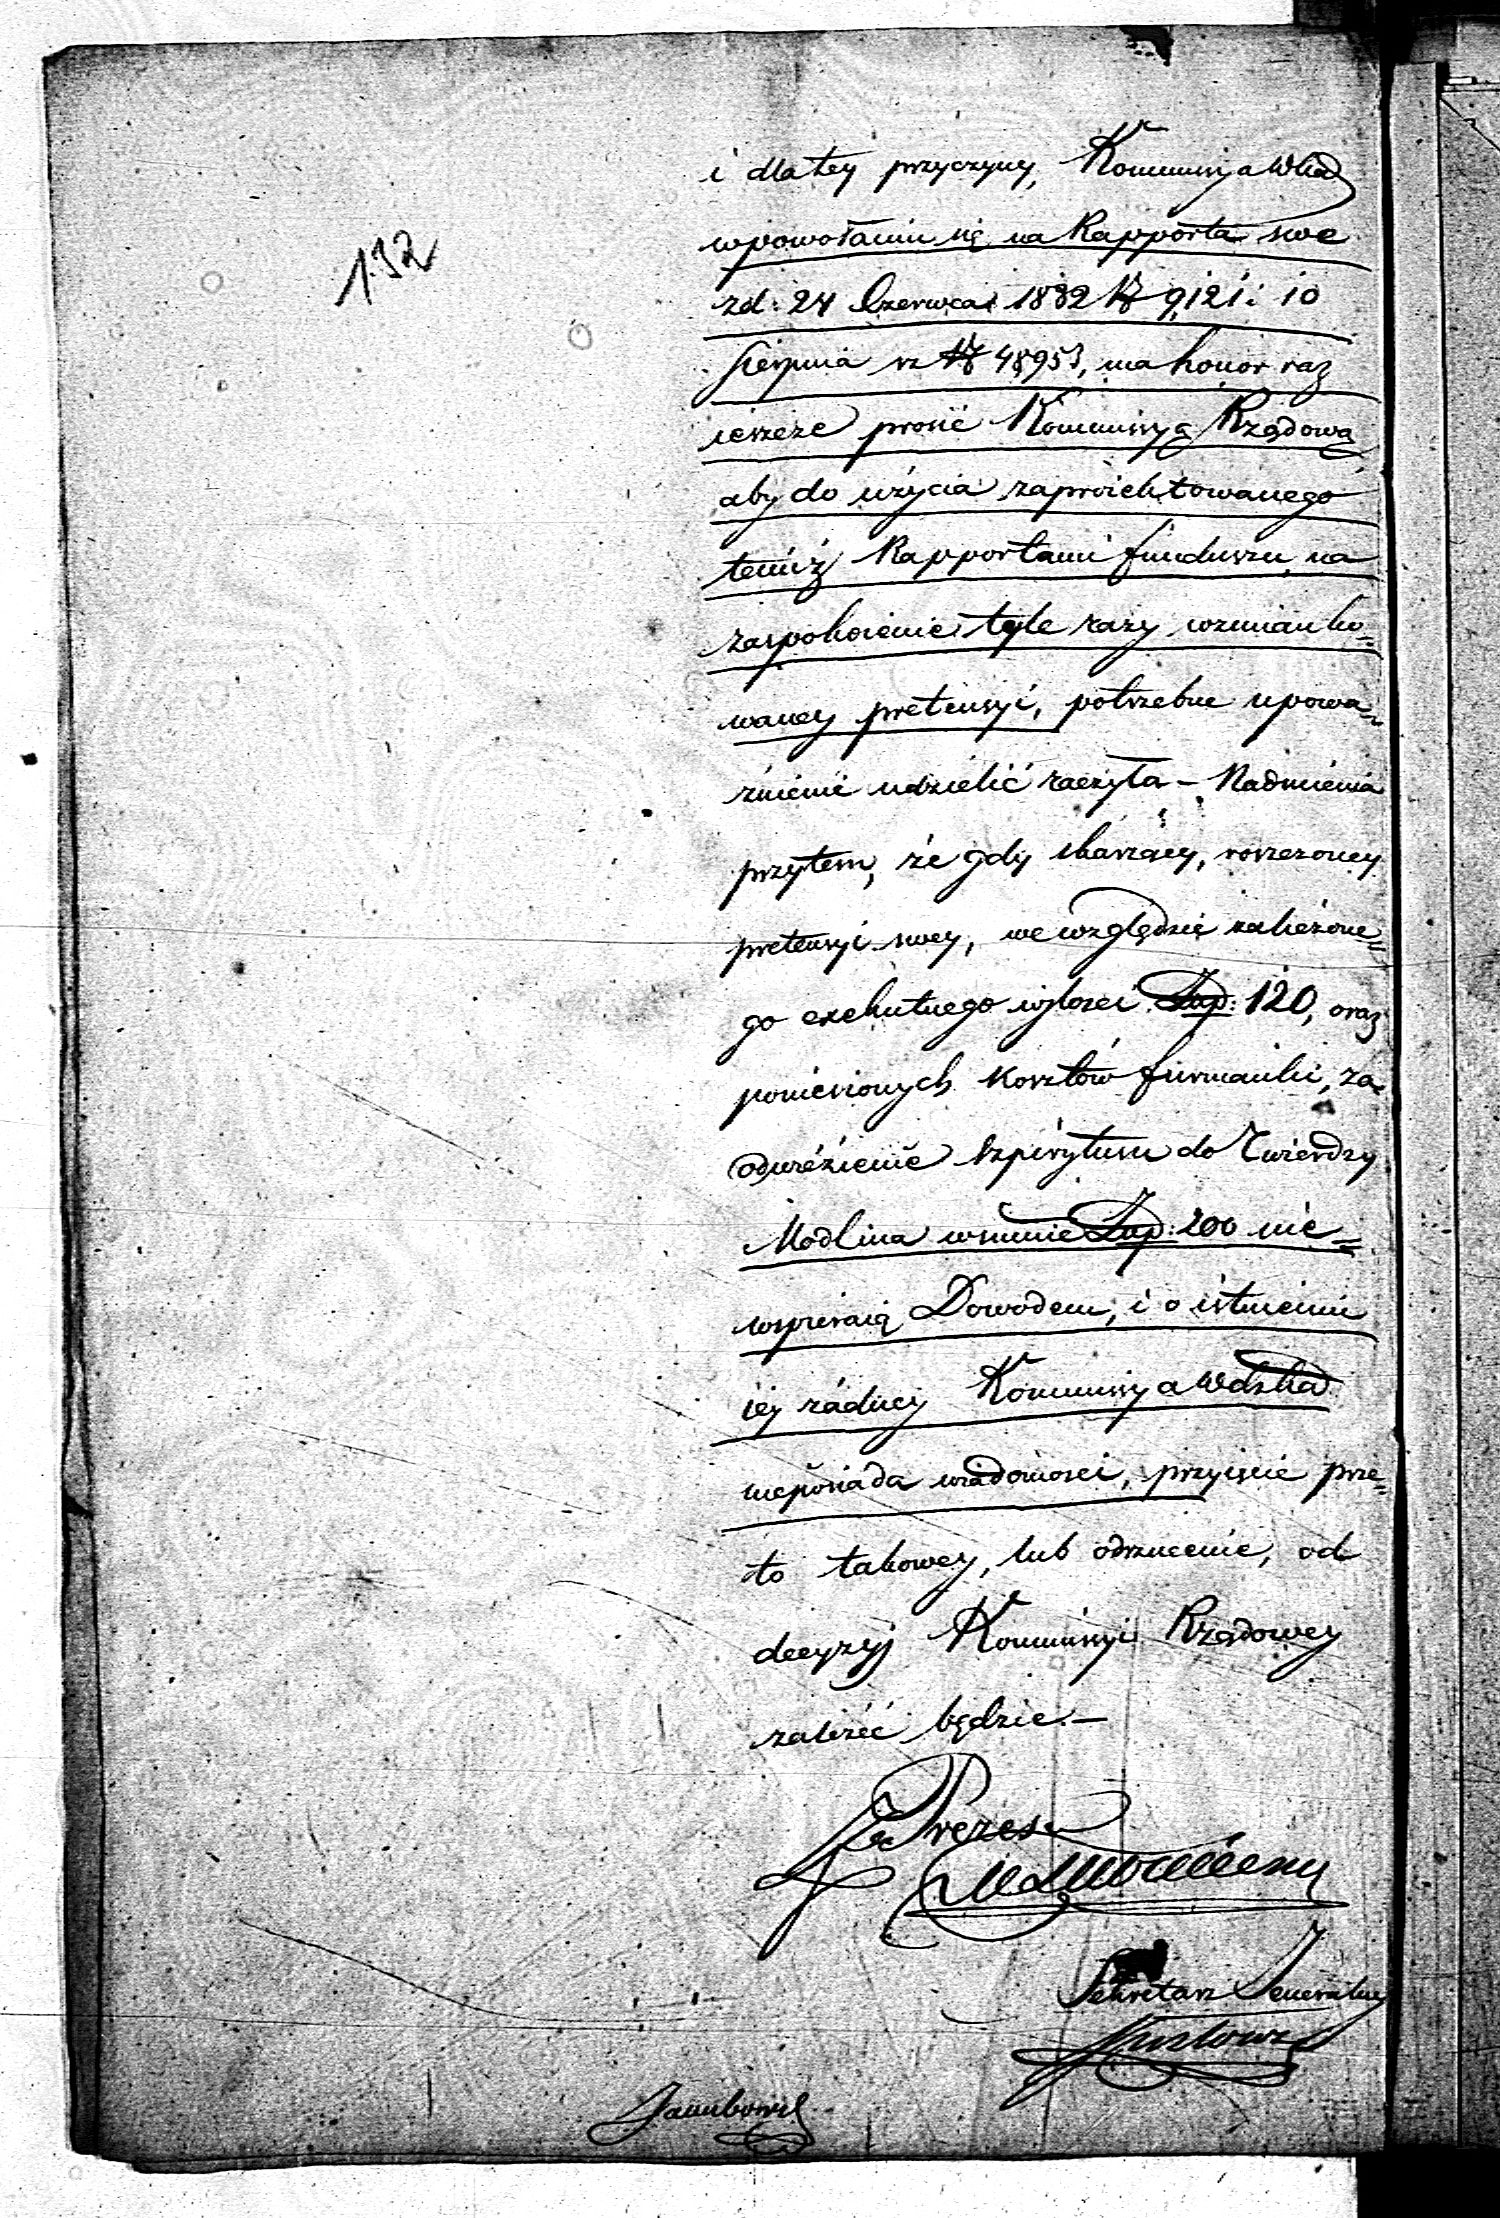 132
i dla tey przyczyny, Kommissya Wdzka
w powołaniu się na Rapporta swe
z d: 24 Czerwca 1832 N 9,121 i 10
Sierpnia rz N 48953, ma honor raz
ieszcze prosić Kommissyą Rządową
aby do użycia zaproiektowanego
temiż Rapportami funduszu na
zaspokoienie tyle razy wzmianko=
waney pretensyi, potrzebne upowa=
żnienie udzielić raczyła – Nadmienia
przytem, że gdy skarżący, roszczoney
pretensyi swey, we względzie należone=
go exekutnego w ilości Złp: 120, oraz
poniesionych kosztów furmanki, za
odwiézienie szpirytusu do Twierdzy
Modlina w summie Złp: 200 nie=
wspieraią Dowodem, i o istnieniu
iey żadney Kommissya Wdzka
nieposiada wiadomości, przyięcie prze=
to takowey, lub odrzucenie, od
decyzyj Kommissyi Rządowey
zależeć będzie.–
Prezes
Sekretarz Jeneralny